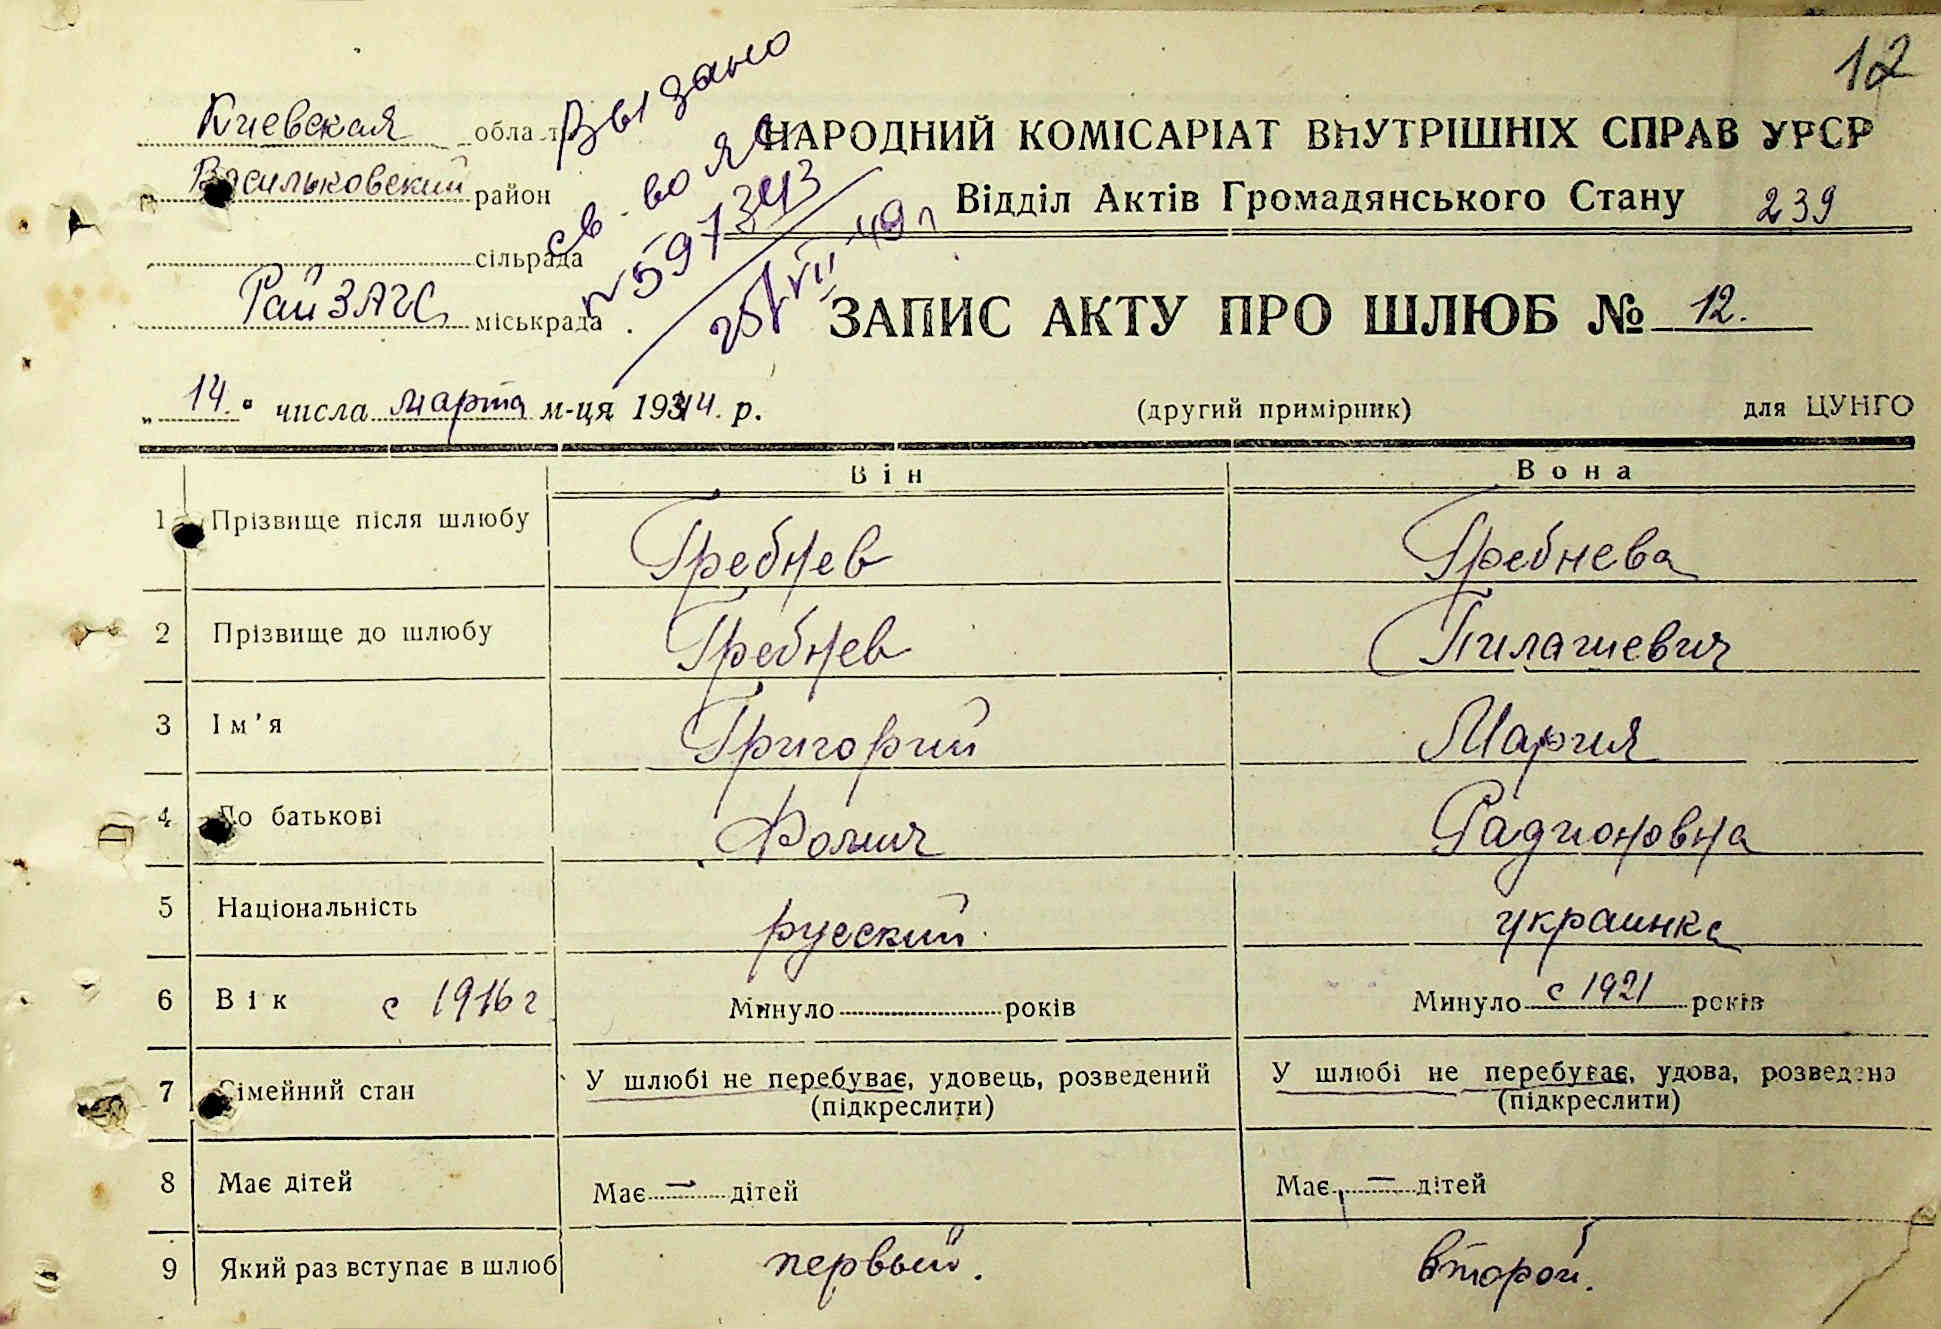 12
Киевская област
Васильковский район
сільрада
РайЗАГС міськрада
Выдано
св-во ЯА
№597343
25/VII-49г
НАРОДНИЙ КОМІСАРІАТ ВНУТРІШНІХ СПРАВ УРСР
Відділ Актів Громадянського Стану 239
ЗАПИС АКТУ ПРО ШЛЮБ № 12.
„14." числа марта м-ця 1944. р. (другий примірник) для ЦУНГО
Він Вона
1 Прізвище після шлюбу Гребнев Гребнева
2 Прізвище до шлюбу Гребнев Пилашевич
3 Ім'я Григорий Мария
4 По батькові Фомич Радионовна
5 Національність русский украинка
6 Вік с 1916 г Минуло років Минуло с 1921 років
7 Сімейний стан У шлюбі не перебуває, удовець, розведений У шлюбі не перебуває, удова, розведена
(підкреслити) (підкреслити)
8 Має дітей Має – дітей Має – дітей
9 Який раз вступає в шлюб первый. второй.